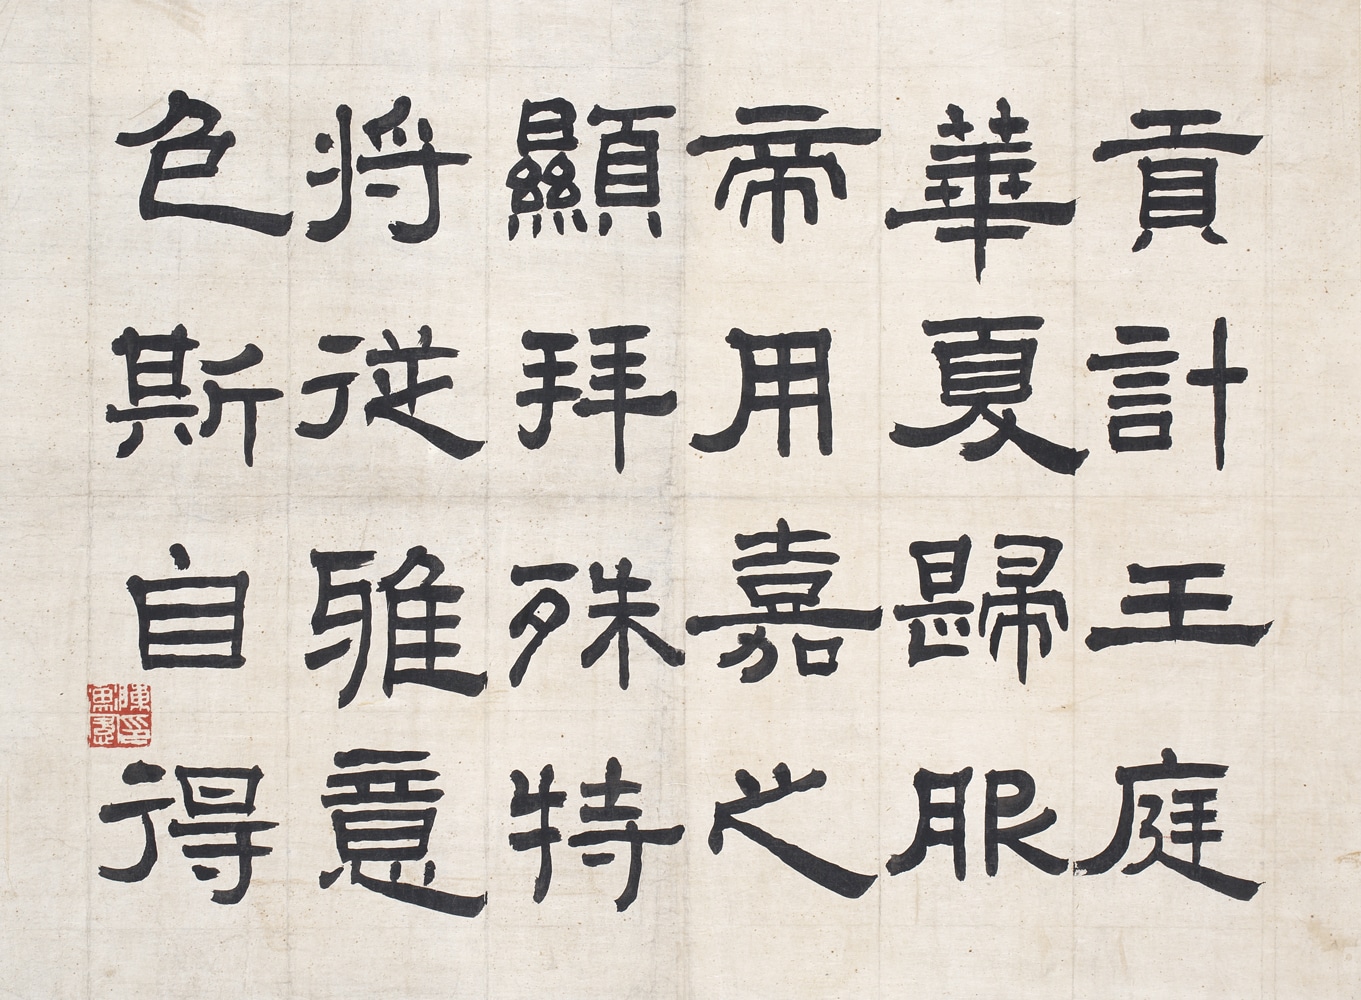 貢計王庭
華夏歸服
帝用嘉之
顯拜殊特
將從雅意
色斯自得